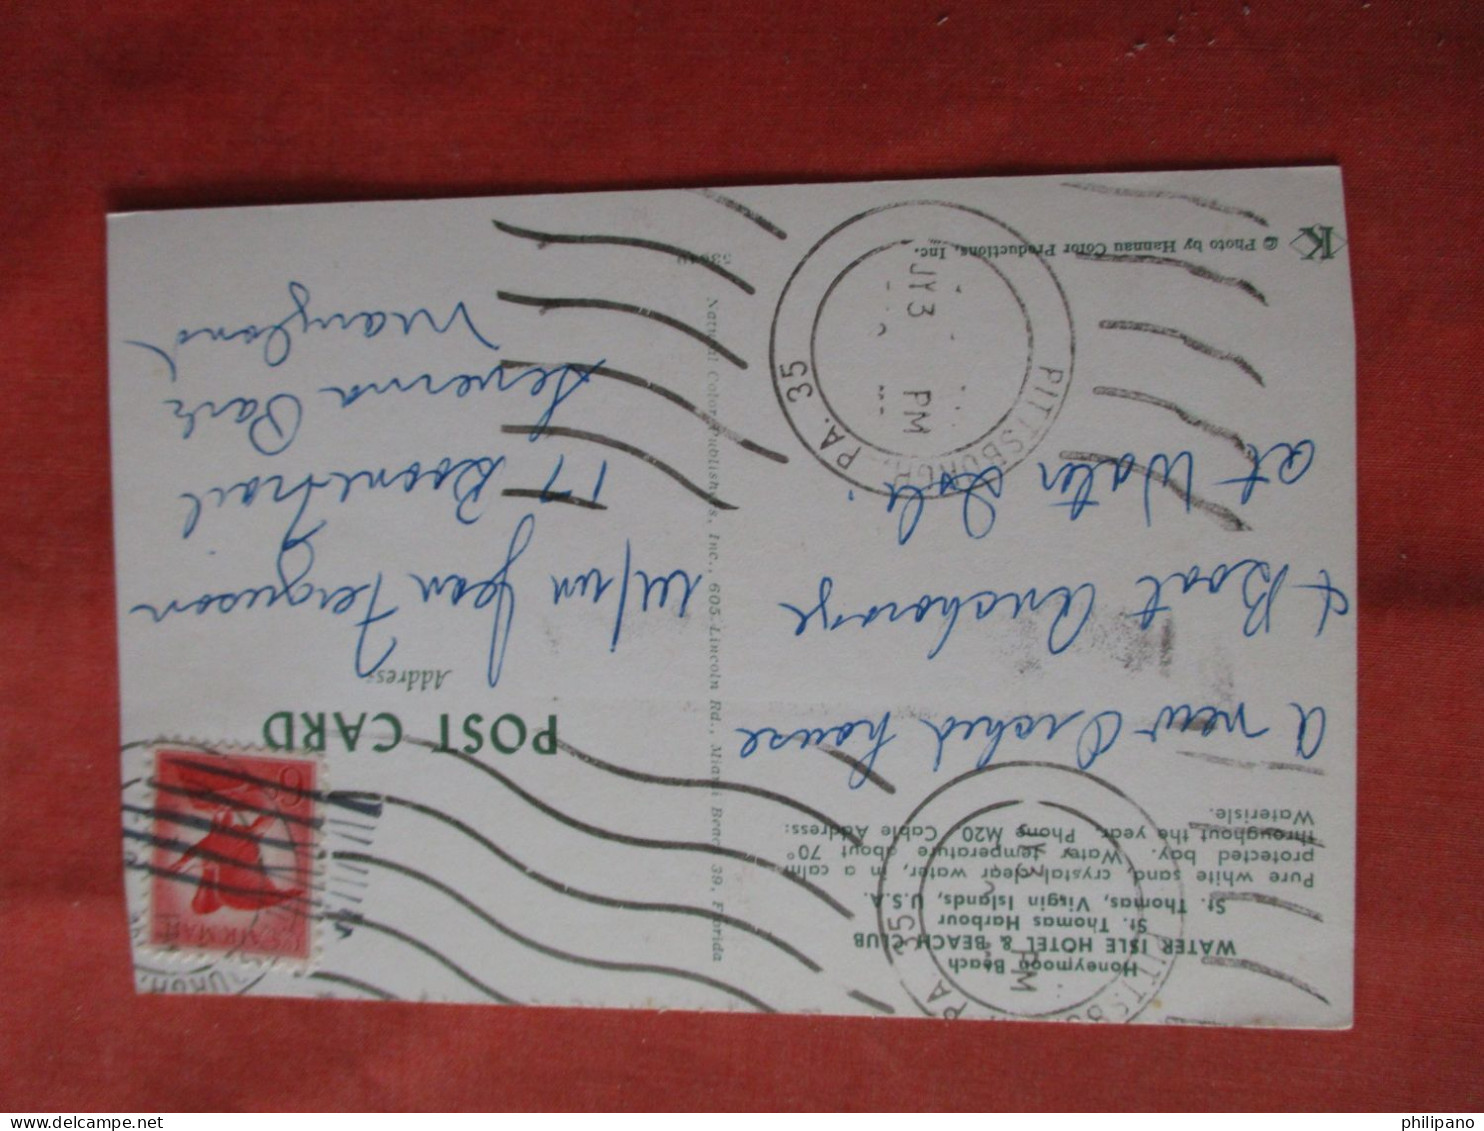 Honeymoon Beach
WATER ISLE HOTEL & BEACH CLUB
St. Thomas Harbour
St. Thomas, Virgin Islands, U.S.A.
Pure white sand, crystal clear water, in a calm
protected bay. Water temperature about 70°
throughout the year. Phone M20 Cable Address:
Waterisle.
A new Orchid house
& Boat Anchorage
at Water Isle.
© Photo by Hannau Color Productions, Inc.
K
Natural Color Publishers, Inc., 605 Lincoln Rd., Miami Beach 39, Florida
POST CARD
Address
Jean Ferguson
17 Boonetrail
Severna Park
Maryland
PITTSBURGH, PA. 35
JY 3
PM
PITTSB
PA. 35
PM
6c
U.S. AIR MAIL
philipano